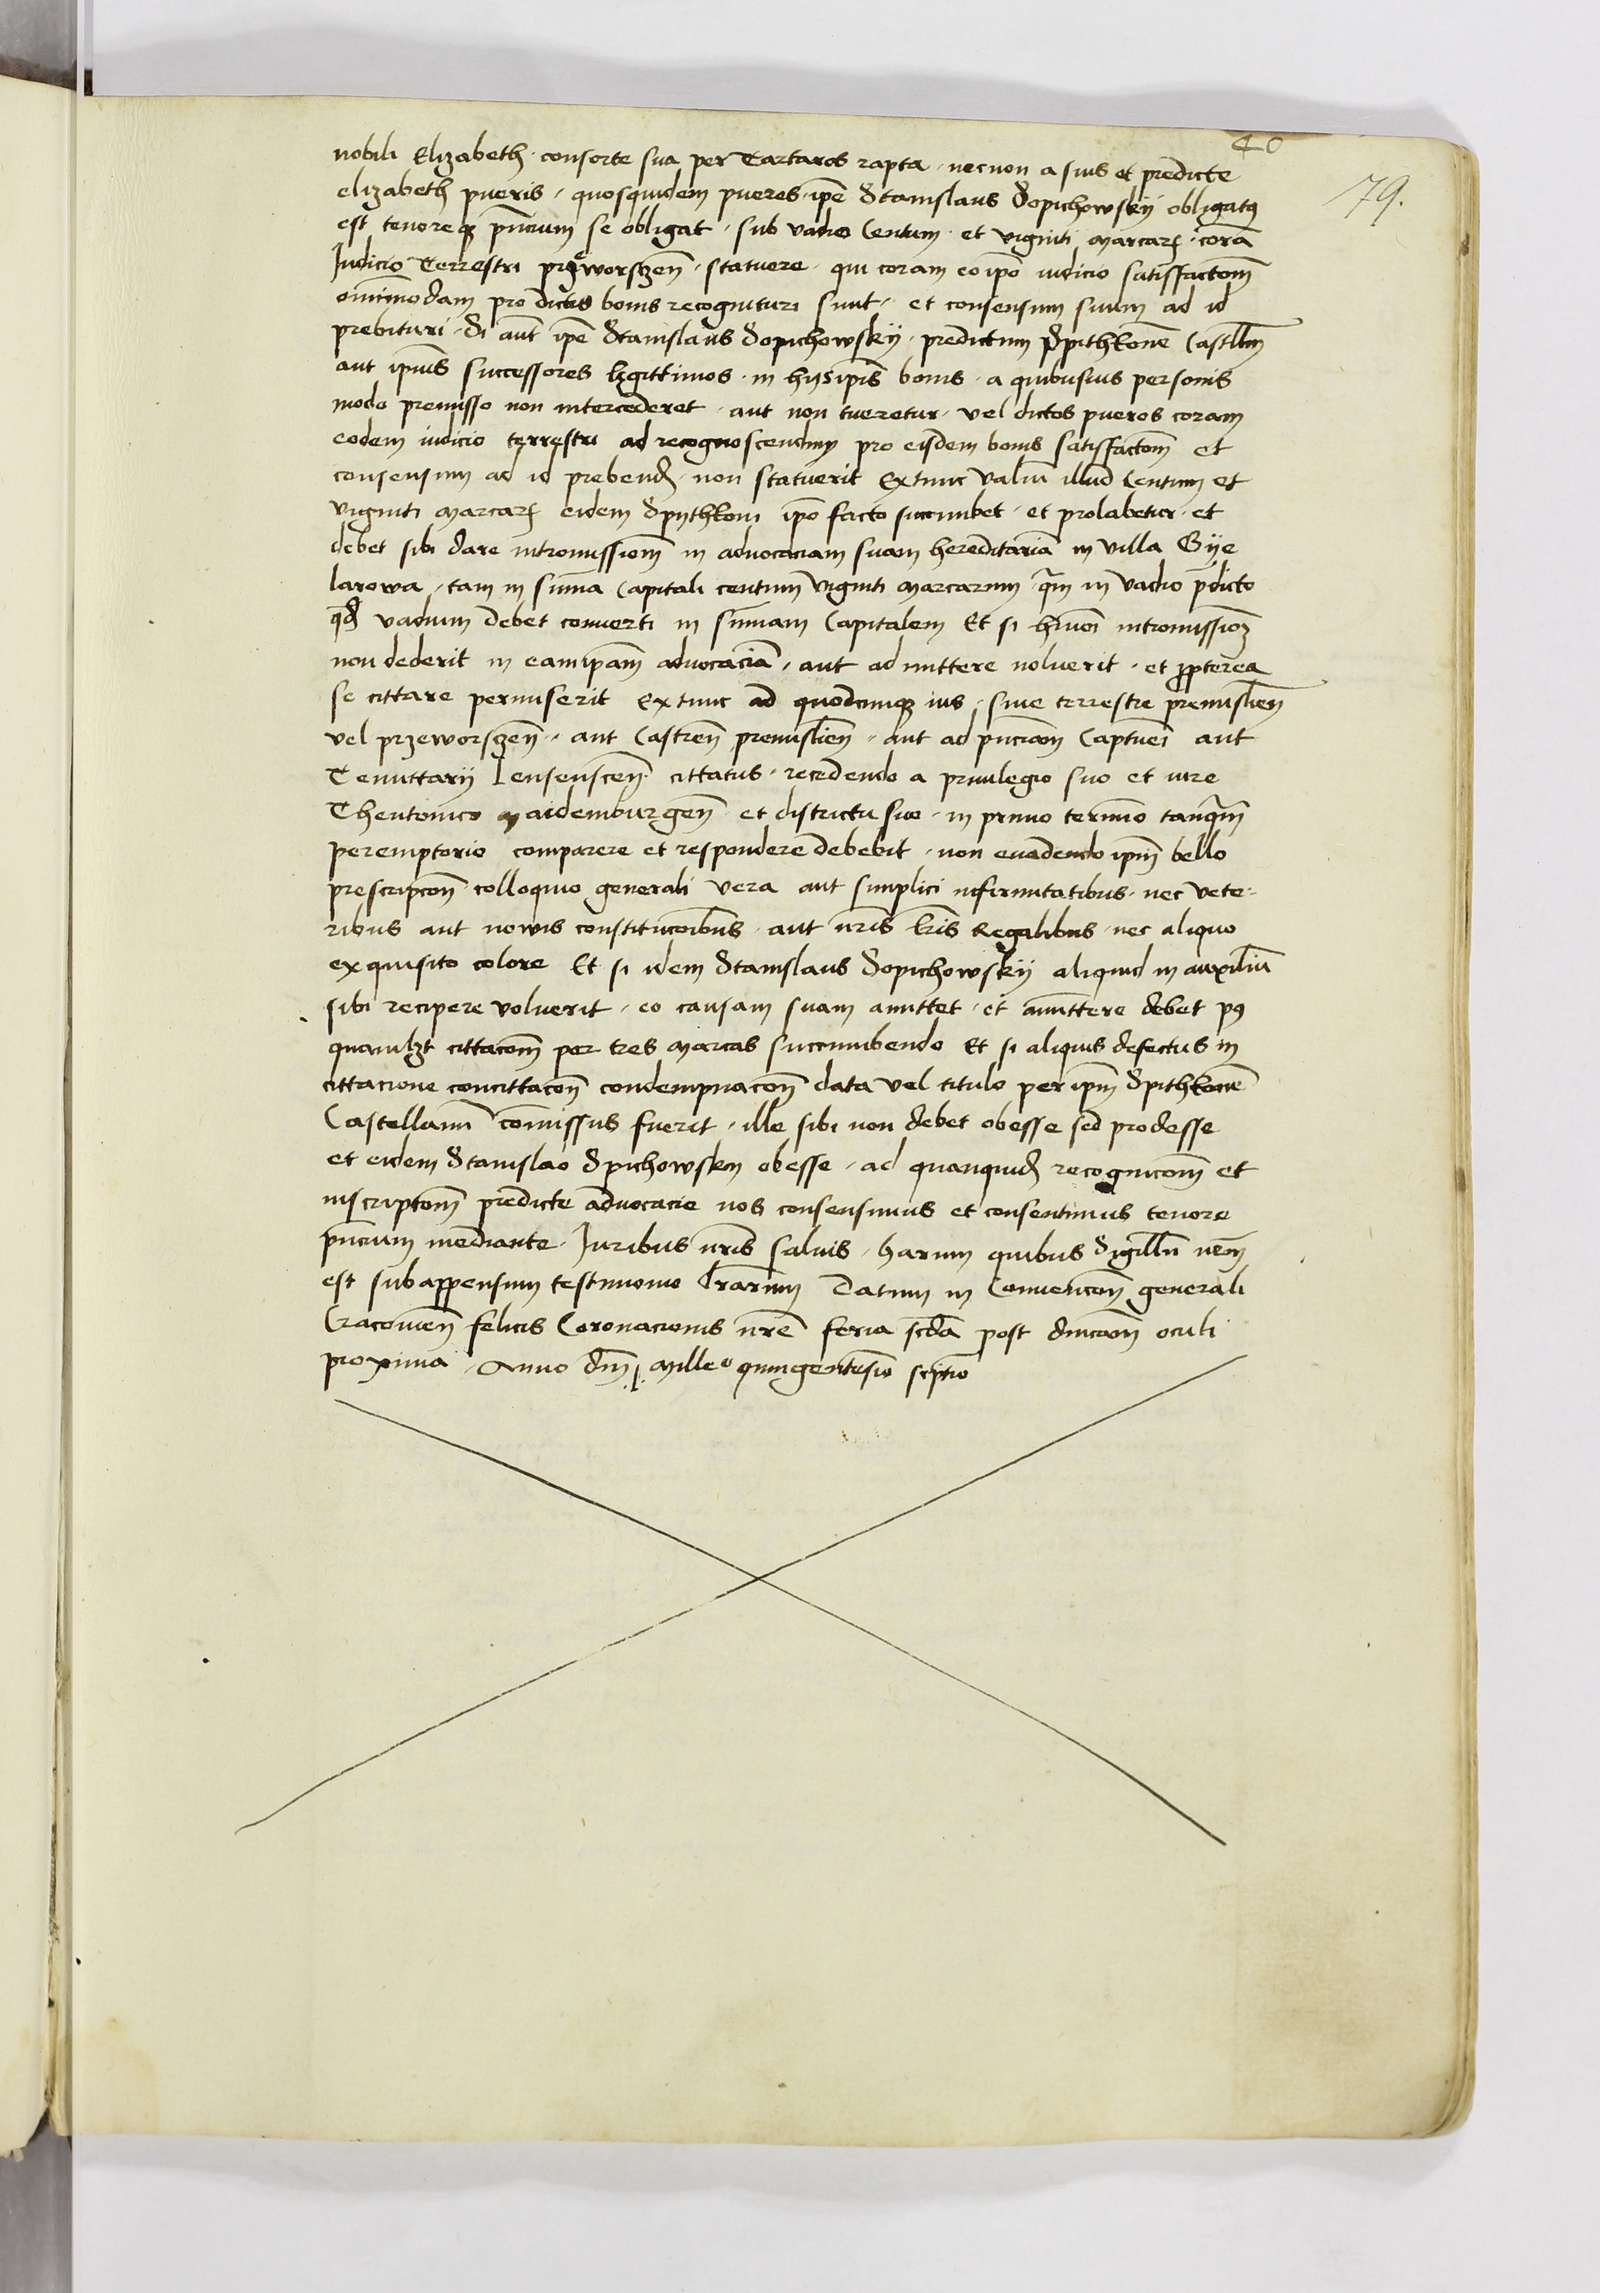 40
79.
nobili Elizabeth · consorte sua per Tartaros rapta · necnon a suis et predicte
elizabeth pueris · quosquidem pueros · ipẽ Stanislaus Sopichowskÿ obligatꝯ
est tenoreqꝫ pñcium se obligat · sub vadio Centum · et viginti marcarꝝ · corã
Iudicio Terrestri przeworszeñ · statuere · qui coram eo ipõ iudicio satisffactom̃
omnimodam pro dictis bonis recognituri sunt · et consensum suum ad id
prebituri · Si aut̃ ipẽ Stanislaus Sopichowskÿ · predictum Spithkonẽ Castllm̃
aut ipius̃ successores legittimos · in hijs ipis̃ bonis · a quibusuis personis
modo premisso non intercederet · aut non tueretur · vel dictos pueros coram
eodem iudicio terrestri ad recognoscendum pro eisdem bonis satisffactom̃ et
consensum ad id prebend̃ · non statuerit Extunc valiũ illud Centum et
viginti marcarꝝ eidem Spythkoni ipõ facto succumbet · et prolabetur · et
debet sibi dare intromissiom̃ in advocaciam suam hereditariã in villa Gÿe
larowa · tam in sum̃a Capitali centum viginti marcarum qm̃ in vadio p̃dicto
qd̃ vadium debet conuerti in sum̃am Capitalem Et si hmõi intromissioꝫ
non dederit in eam ipam̃ advocaciã · aut admittere noluerit · et ꝓpterea
se cittare permiserit Extunc ad quodcunqꝫ ius · siue terrestre premislieñ
vel przeworszeñ · aut Castreñ premislieñ · aut ad pñciam Captuei aut
Tenuttarij Lensenscen̄ cittatus · recedendo a priuilegio suo et iure
Theutonico Maidemburgeñ et districtu suo · in primo termĩo tanqm̃
peremptorio comparere et respondere debebit · non euadendo ipm̃ bello
prescripcoñ colloquio generali vera aut simplici infirmitatibus · nec vete-
ribus aut nowis constitucoĩbus · aut nr̃is lr̃is Regalibus · nec aliquo
exquisito colore Et si idem Stanislaus Sopichowskÿ aliquid in auxiliũ
sibi recipere voluerit · eo causam suam amittet · et amittere debet pꝯ
quamlꝫt cittacom̃ per tres marcas succumbendo Et si aliquis defectus in
cittacione concittacoñ condempnacoñ data vel titulo per ipm̃ Spithkonẽ
Castellanũ com̃issus fuerit · ille sibi non debet obesse sed prodesse
et eidem Stanislao Spichowskij obesse · ad quamquid̃ recognicom̃ et
inscriptom̃ predicte advocacie nos consensimus et consentimus tenore
pñcium mediante · Iuribus nr̃is saluis · harum quibus Sigillũ nr̃m
est subappensum testimonio lr̃arum Datum in Convencoñ generali
Cracovieñ felicis Coronacionis nr̃e feria scdã post dnĩcam oculi
proxima · Anno dñi Millo quingentesĩo septĩo